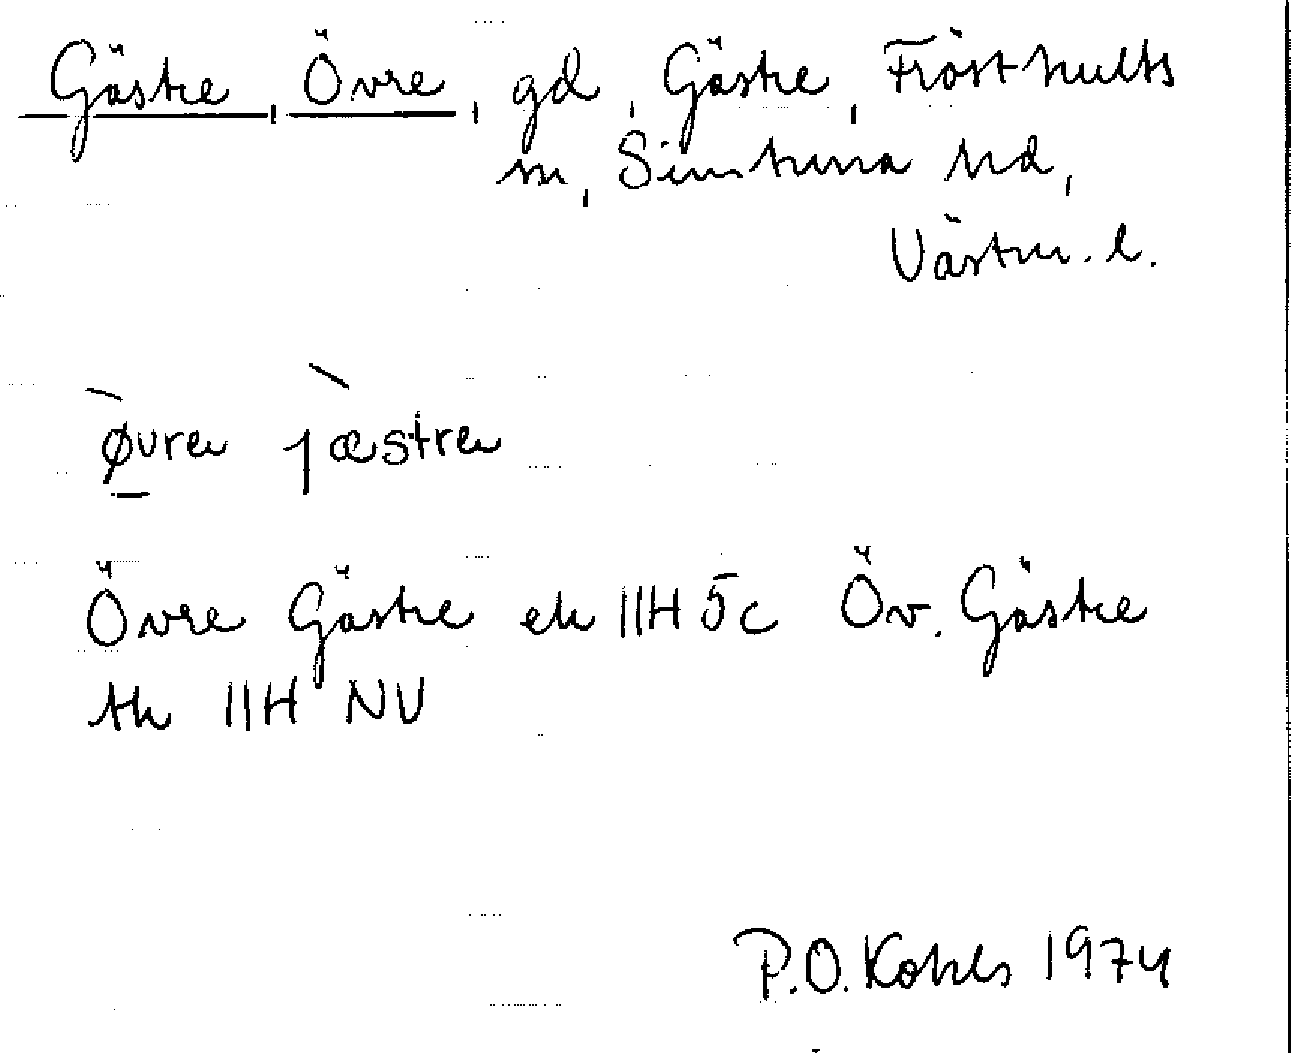 Gästre, Övre, gd, Gästre, Frösthults
sn, Simtuna hd,
Västm. l.
øvrə jæstrə
Övre Gästre ek 11H 5c Öv. Gästre
tk 11H NV
P.O. Kohls 1974